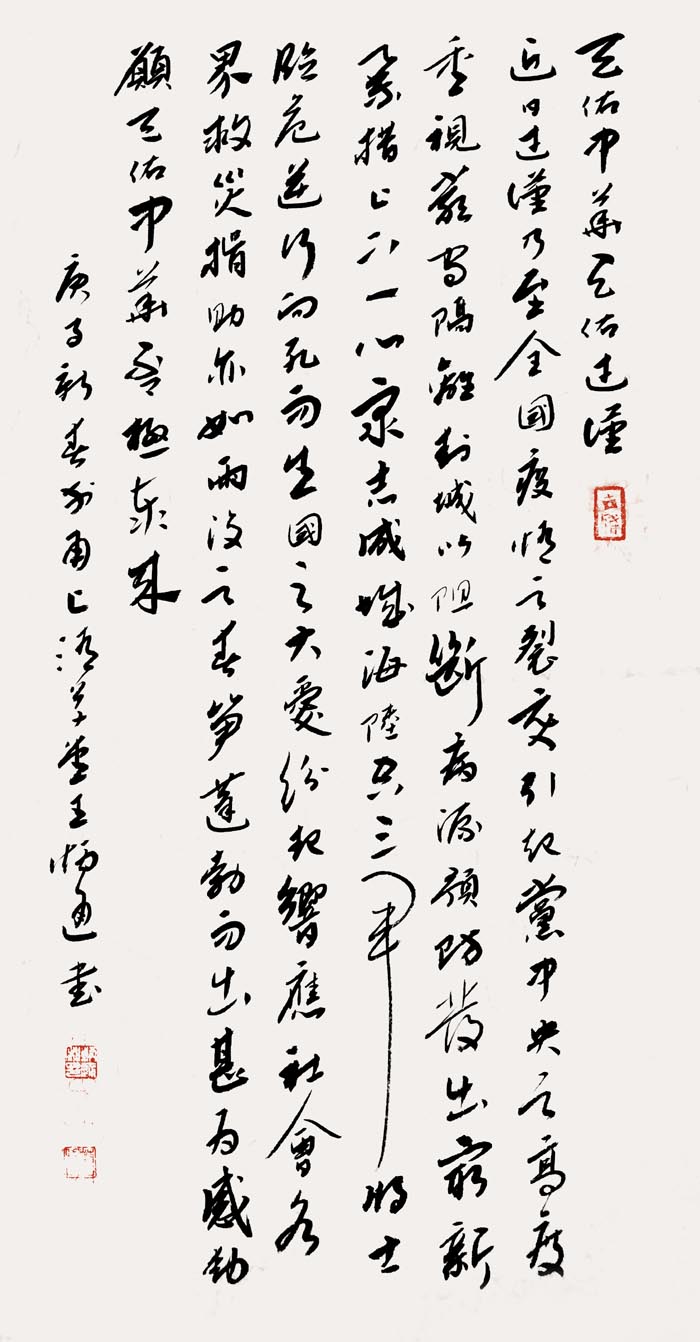 天佑中華天佑武漢
近日武漢乃至全國疫情之裂變引起黨中央之高度
重視嚴守隔離封城以阻斷病源預防發出最新
舉措上下一心衆志成城海陸空三軍將士
臨危逆行向死而生國之大愛紛起響應社會各
界救災捐助亦如雨後之春筍蓬勃而出甚為感動
願天佑中華否極泰來
庚子新春於甬上草堂王炳通書